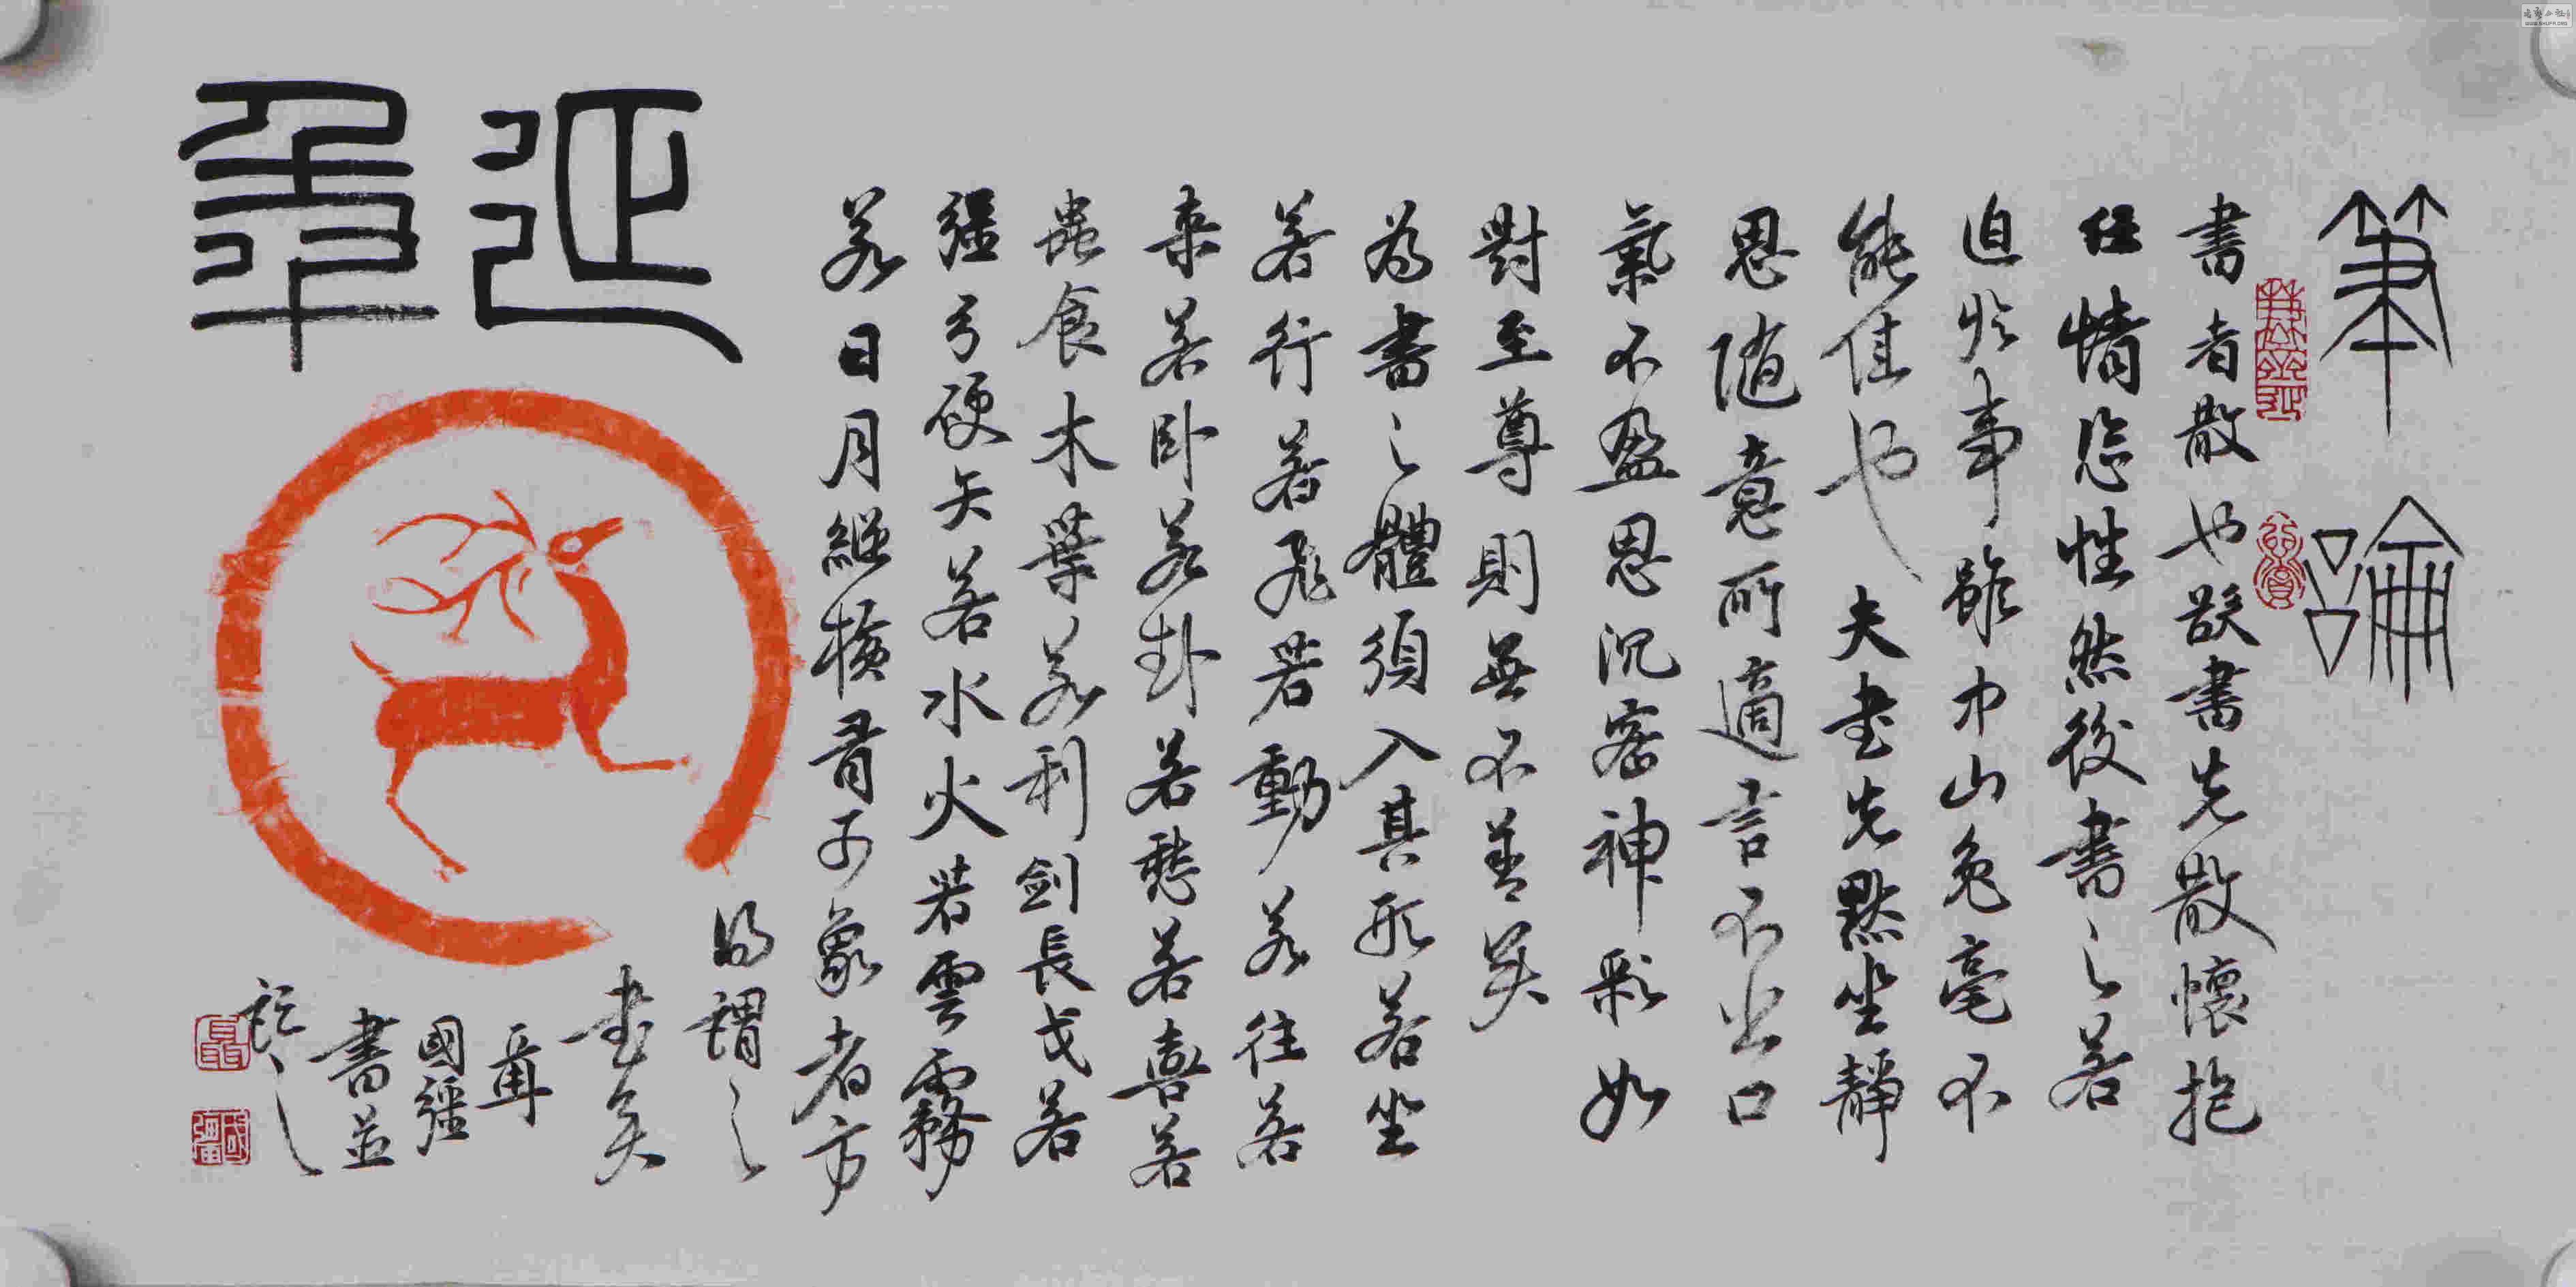 筆論
書者散也欲書先散懷抱
任情恣性然後書之若
迫於事雖中山兔毫不
能佳也夫書先默坐靜
思隨意所適言不出口
氣不盈息沉密神彩如
對至尊則無不善矣
為書之體須入其形若坐
若行若飛若動若往若
來若臥若起若愁若喜若
蟲食木葉若利劍長戈若
強弓硬矢若水火若雲霧
若日月縱橫有可象者方
得謂之
書矣
國強
書並
記之
延年
國疆